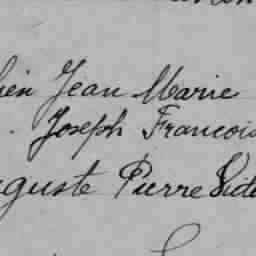 ien Jean Marie
. Joseph Francois
uguste Pierre Vida